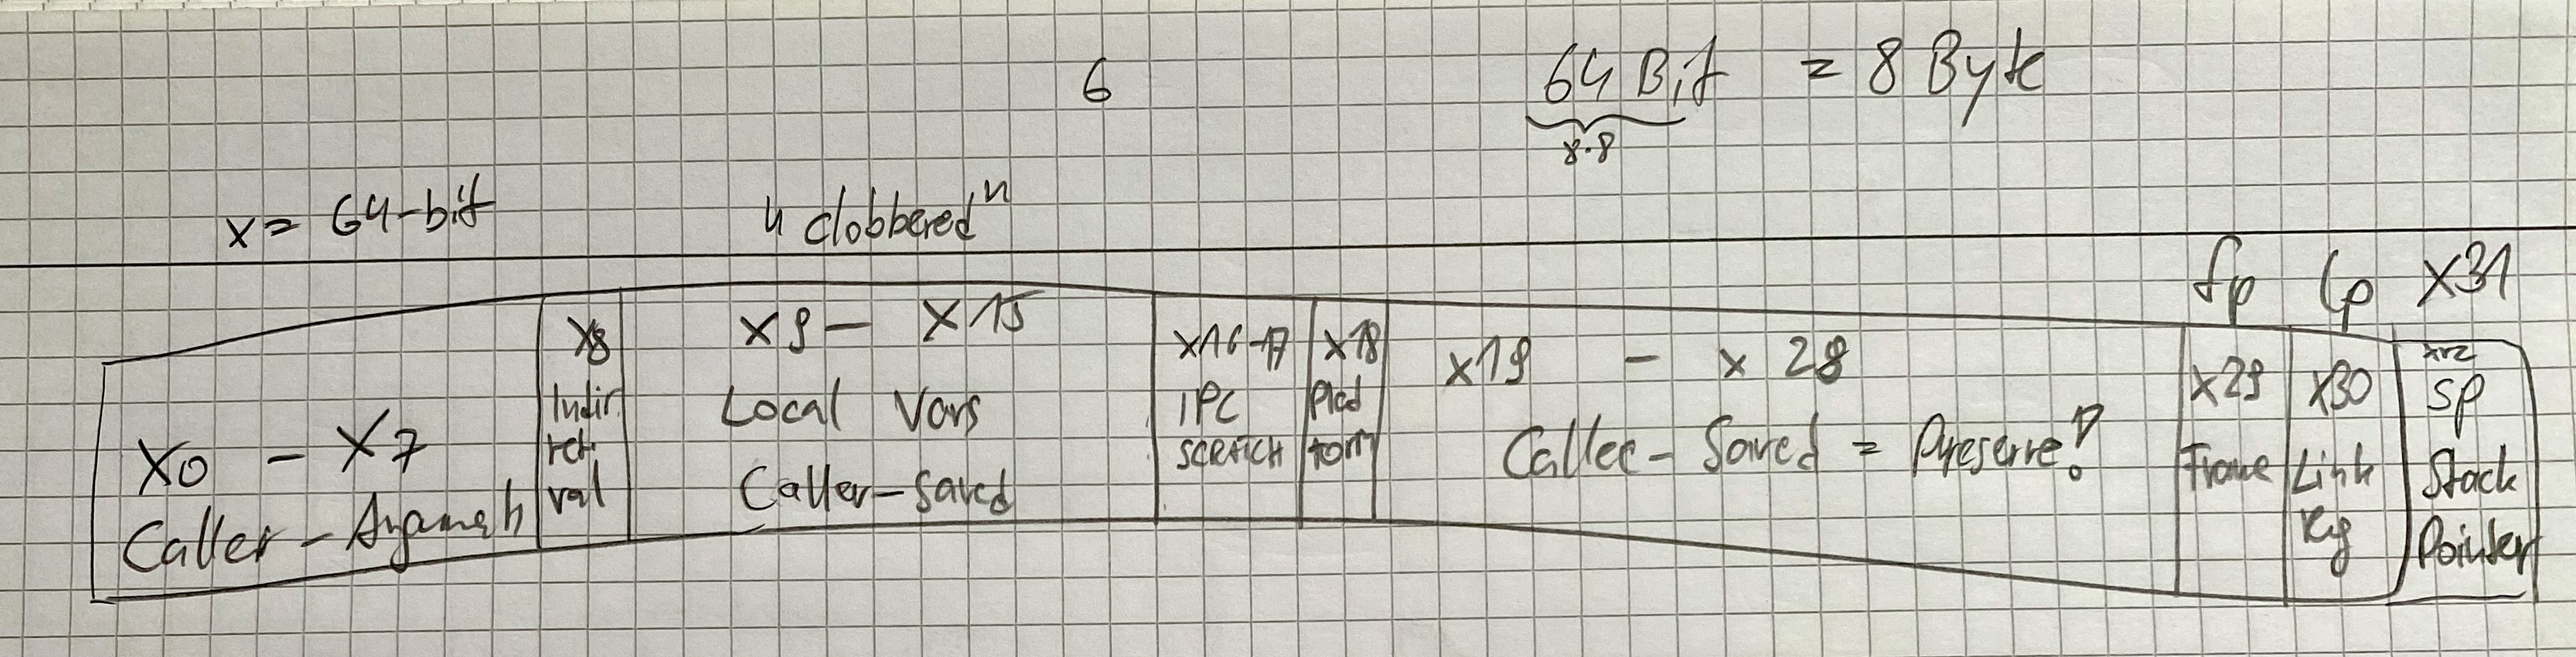 6
64 Bit = 8 Byte
8.8
x = 64-bit
"clobbered"
fp
lp
X31
X0 - X7
Caller -
X8
Indir
ret.
val
X9 - X15
Local Vars
Caller-saved
X16-17
IPC
SCRATCH
X18
Plat
form
X19 - x 28
Callee-Saved = Preserve!
X29
Frame
X30
Link
Reg
xrz
SP
Stack
Pointer